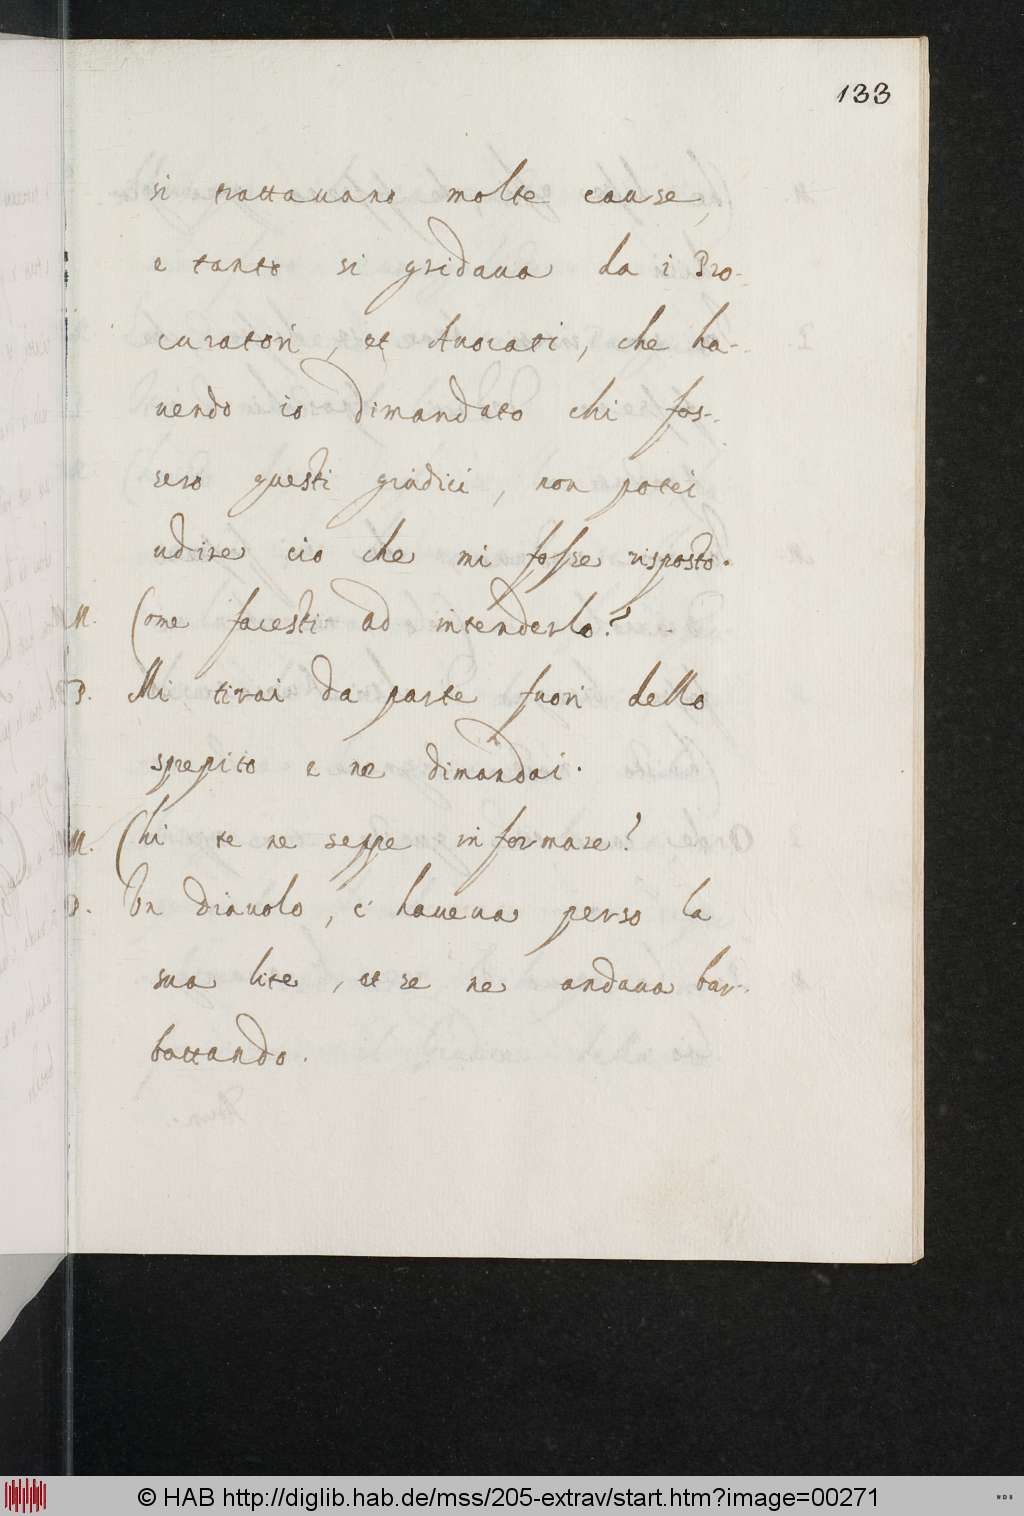 133
si trattauano molte cause,
e tanto si gridaua da i Pro-
curatori, et Auocati, che ha-
uendo io dimandato chi fos-
sero questi giudici, non potei
udire cio che mi fosse risposto.
M. Come facesti ad intenderlo?
P. Mi tirai da parte fuori dello
strepito e ne dimandai.
M. Chi te ne seppe informare?
P. Un diauolo, c' haueua perso la
sua lite, et se ne andaua bar-
bottando.
© HAB http://diglib.hab.de/mss/205-extrav/start.htm?image=00271